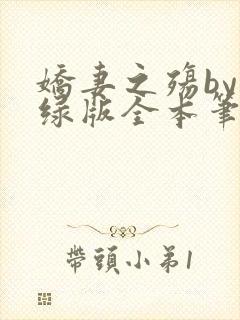 嬌妻之殤by
绿版全本筆
帶頭小弟1